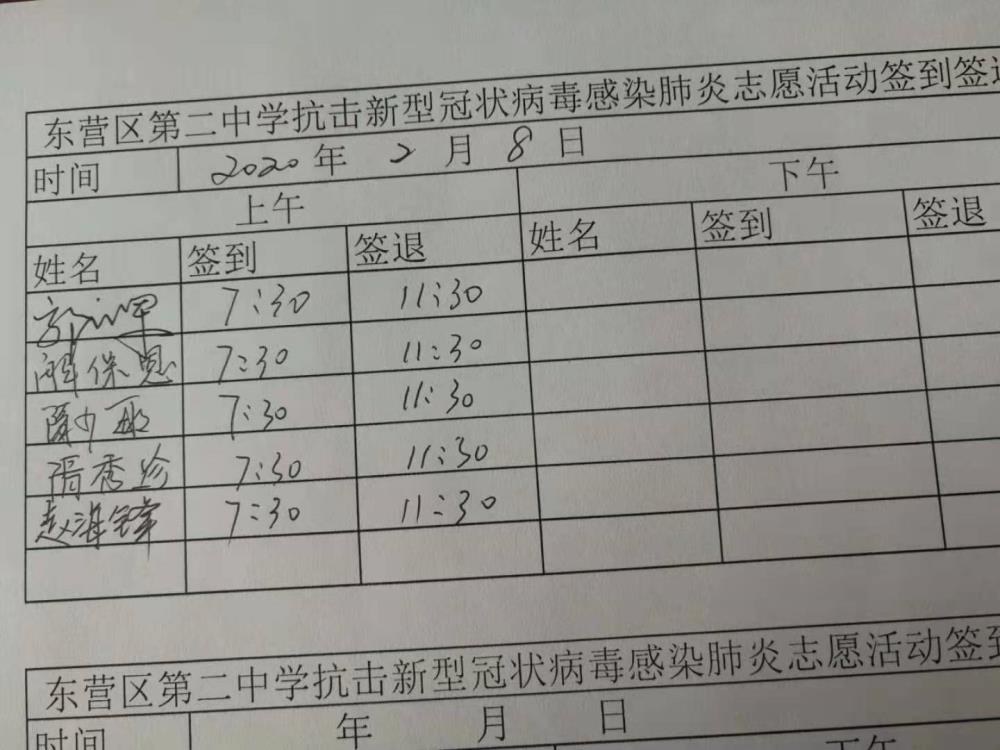 东营区第二中学抗击新型冠状病毒感染肺炎志愿活动签到签退
时间 2020年 2 月 8 日
上午 下午
姓名 签到 签退 姓名 签到 签退
7:30 11:30
解保恩 7:30 11:30
陈少敏 7:30 11:30
隋秀珍 7:30 11:30
赵海锋 7:30 11:30
东营区第二中学抗击新型冠状病毒感染肺炎志愿活动签到
时间 年 月 日
下午